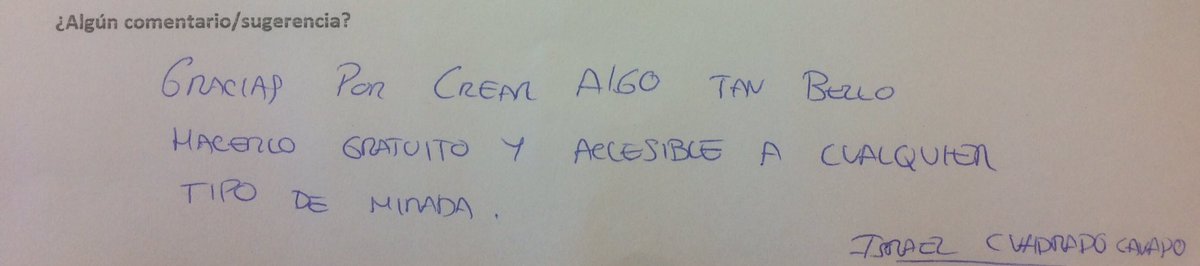 ¿Algún comentario/sugerencia?
GRACIAS POR CREAR ALGO TAN BELLO
HACERLO GRATUITO Y ACCESIBLE A CUALQUIER
TIPO DE MIRADA.
ISRAEL CUADRADO